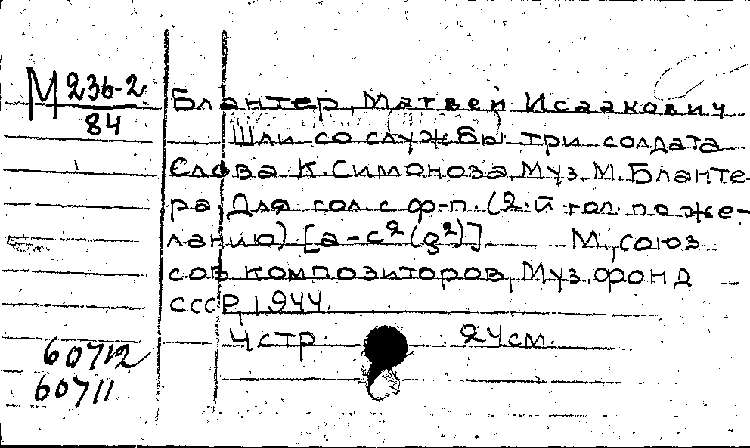 М 236-2
84
Блантер, Матвей Исаакович
Шли со службы три солдата
Слова К. Симонова, Муз. М. Бланте-
ра, Для гол. с ф-п. (2-й гол. по же-
ланию) [a-c² (g²)] М., союз
сов композиторов, Муз. фонд
СССР, 1944.
4 стр. 24 см.
60712
60711